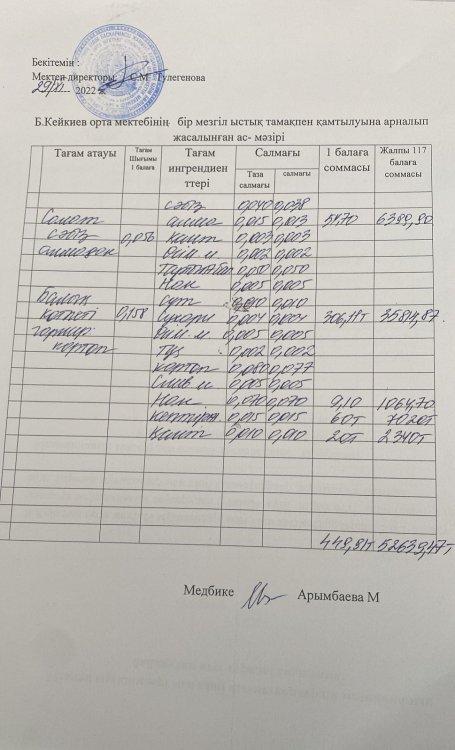 Бекітемін :
Мектеп директоры С.М Тулегенова
29/XI 2022 ж
Б.Кейкиев орта мектебінің бір мезгіл ыстық тамақпен қамтылуына арналып
жасалынған ас- мәзірі
Тағам атауы Тағам Шығымы 1 балаға Тағам ингрендиент тері Салмағы 1 балаға соммасы Жалпы 117 балаға соммасы
Таза салмағы салмағы
сәбіз 0,040 0,038
Салат алма 0,015 0,013 54,70 6399,90
сәбіз 0,056 қант 0,003 0,003
алмадан өсім.м 0,002 0,002
0,050 0,050
Нан 0,005 0,005
Балық сүт 0,010 0,010
котлеті 0,158 Сухари 0,004 0,004 306,11т 35814,87
гарнир өсім.м 0,005 0,005
картоп тұз 0,002 0,002
картоп 0,080 0,077
Слив м 0,005 0,005
Нан 0,070 0,070 9,10 1064,70
0,015 0,015 60т 7020т
Қант 0,010 0,010 20т 2340т
449,91т 52639,47т
Медбике Арымбаева М